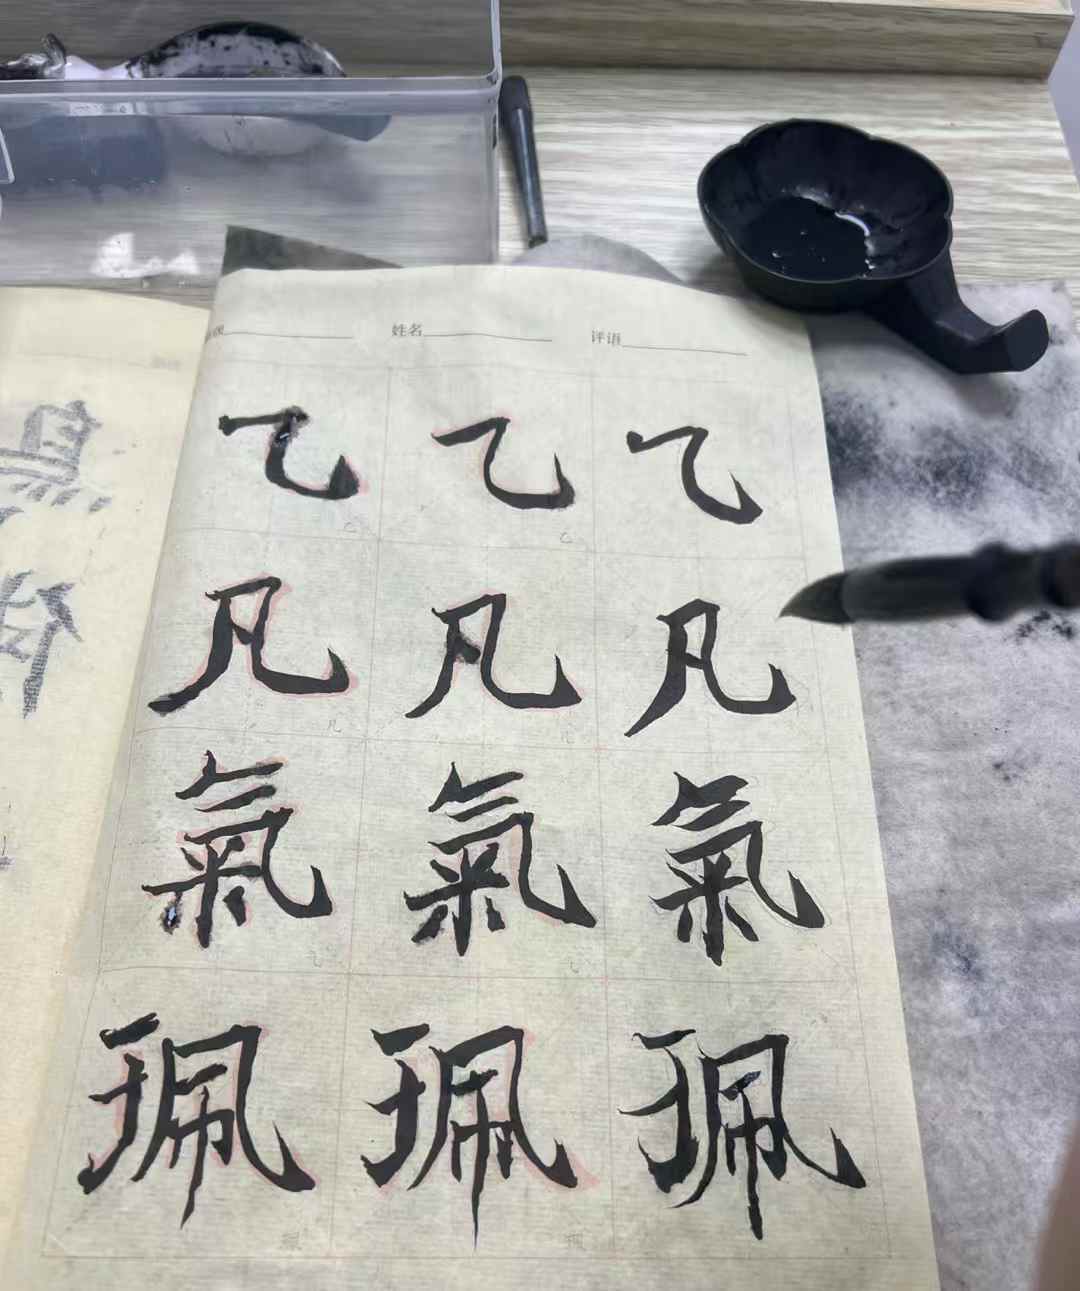 姓名 评语
乙 乙 乙
凡 凡 凡
氣 氣 氣
珮 珮 珮